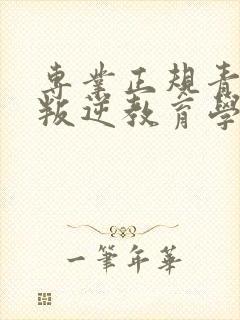 専業正規青
叛逆教育學
一筆年華